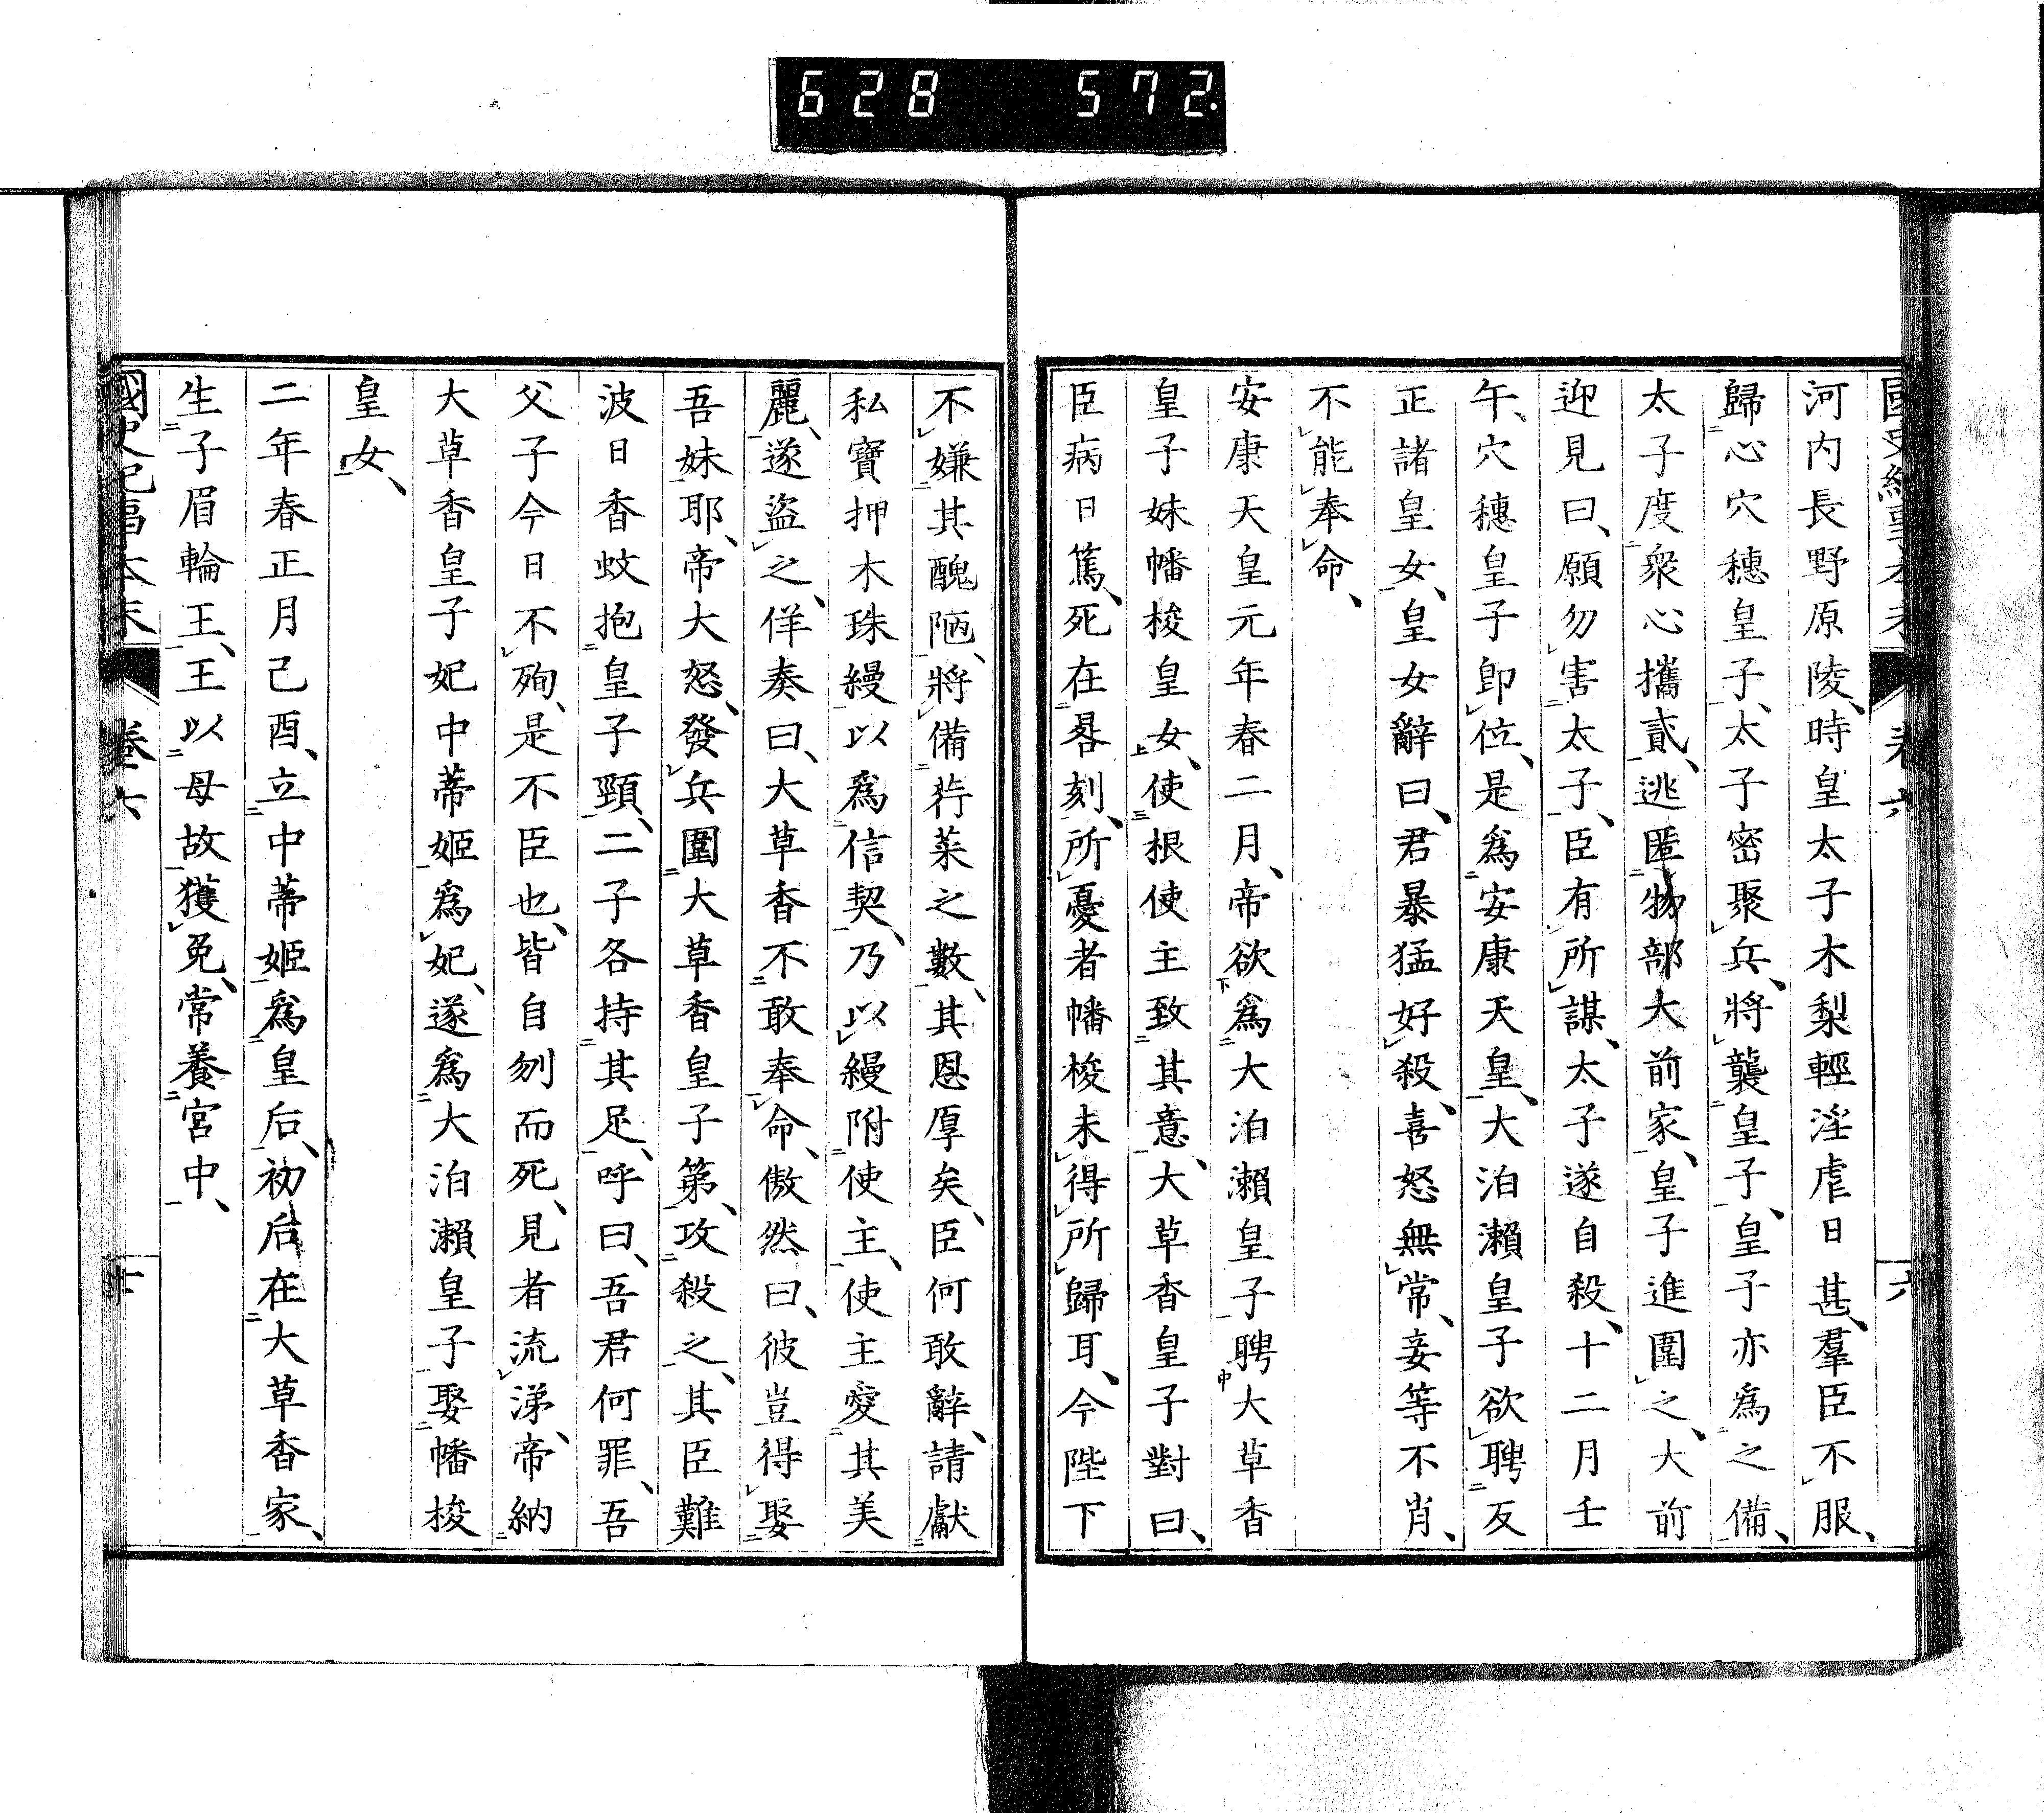 628 572.
河内長野原陵、時皇太子木梨輕淫虐日甚、羣臣不服、
歸心穴穗皇子、太子密聚兵、將襲皇子、皇子亦爲之備、
太子度衆心攜貳、逃匿物部大前家、皇子進圍之、大前
迎見曰、願勿害太子、臣有所謀、太子遂自殺、十二月壬
午、穴穗皇子即位、是爲安康天皇、大泊瀨皇子欲聘反
正諸皇女、皇女辭曰、君暴猛好殺、喜怒無常、妾等不肖、
不能奉命、
安康天皇元年春二月、帝欲爲大泊瀨皇子聘大草香
皇子妹幡梭皇女、使根使主致其意、大草香皇子對曰、
臣病日篤、死在晷刻、所憂者幡梭未得所歸耳、今陛下
不嫌其醜陋、將備荇菜之數、其恩厚矣、臣何敢辭、請獻
私寶押木珠縵以爲信契、乃以縵附使主、使主愛其美
麗、遂盜之、佯奏曰、大草香不敢奉命、傲然曰、彼豈得娶
吾妹耶、帝大怒、發兵圍大草香皇子第、攻殺之、其臣難
波日香蚊抱皇子頸、二子各持其足、呼曰、吾君何罪、吾
父子今日不殉、是不臣也、皆自刎而死、見者流涕、帝納
大草香皇子妃中蒂姬爲妃、遂爲大泊瀨皇子娶幡梭
皇女、
二年春正月己酉、立中蒂姬爲皇后、初后在大草香家、
生子眉輪王、王以母故獲免、常養宮中、
國史紀事本末 卷六 七